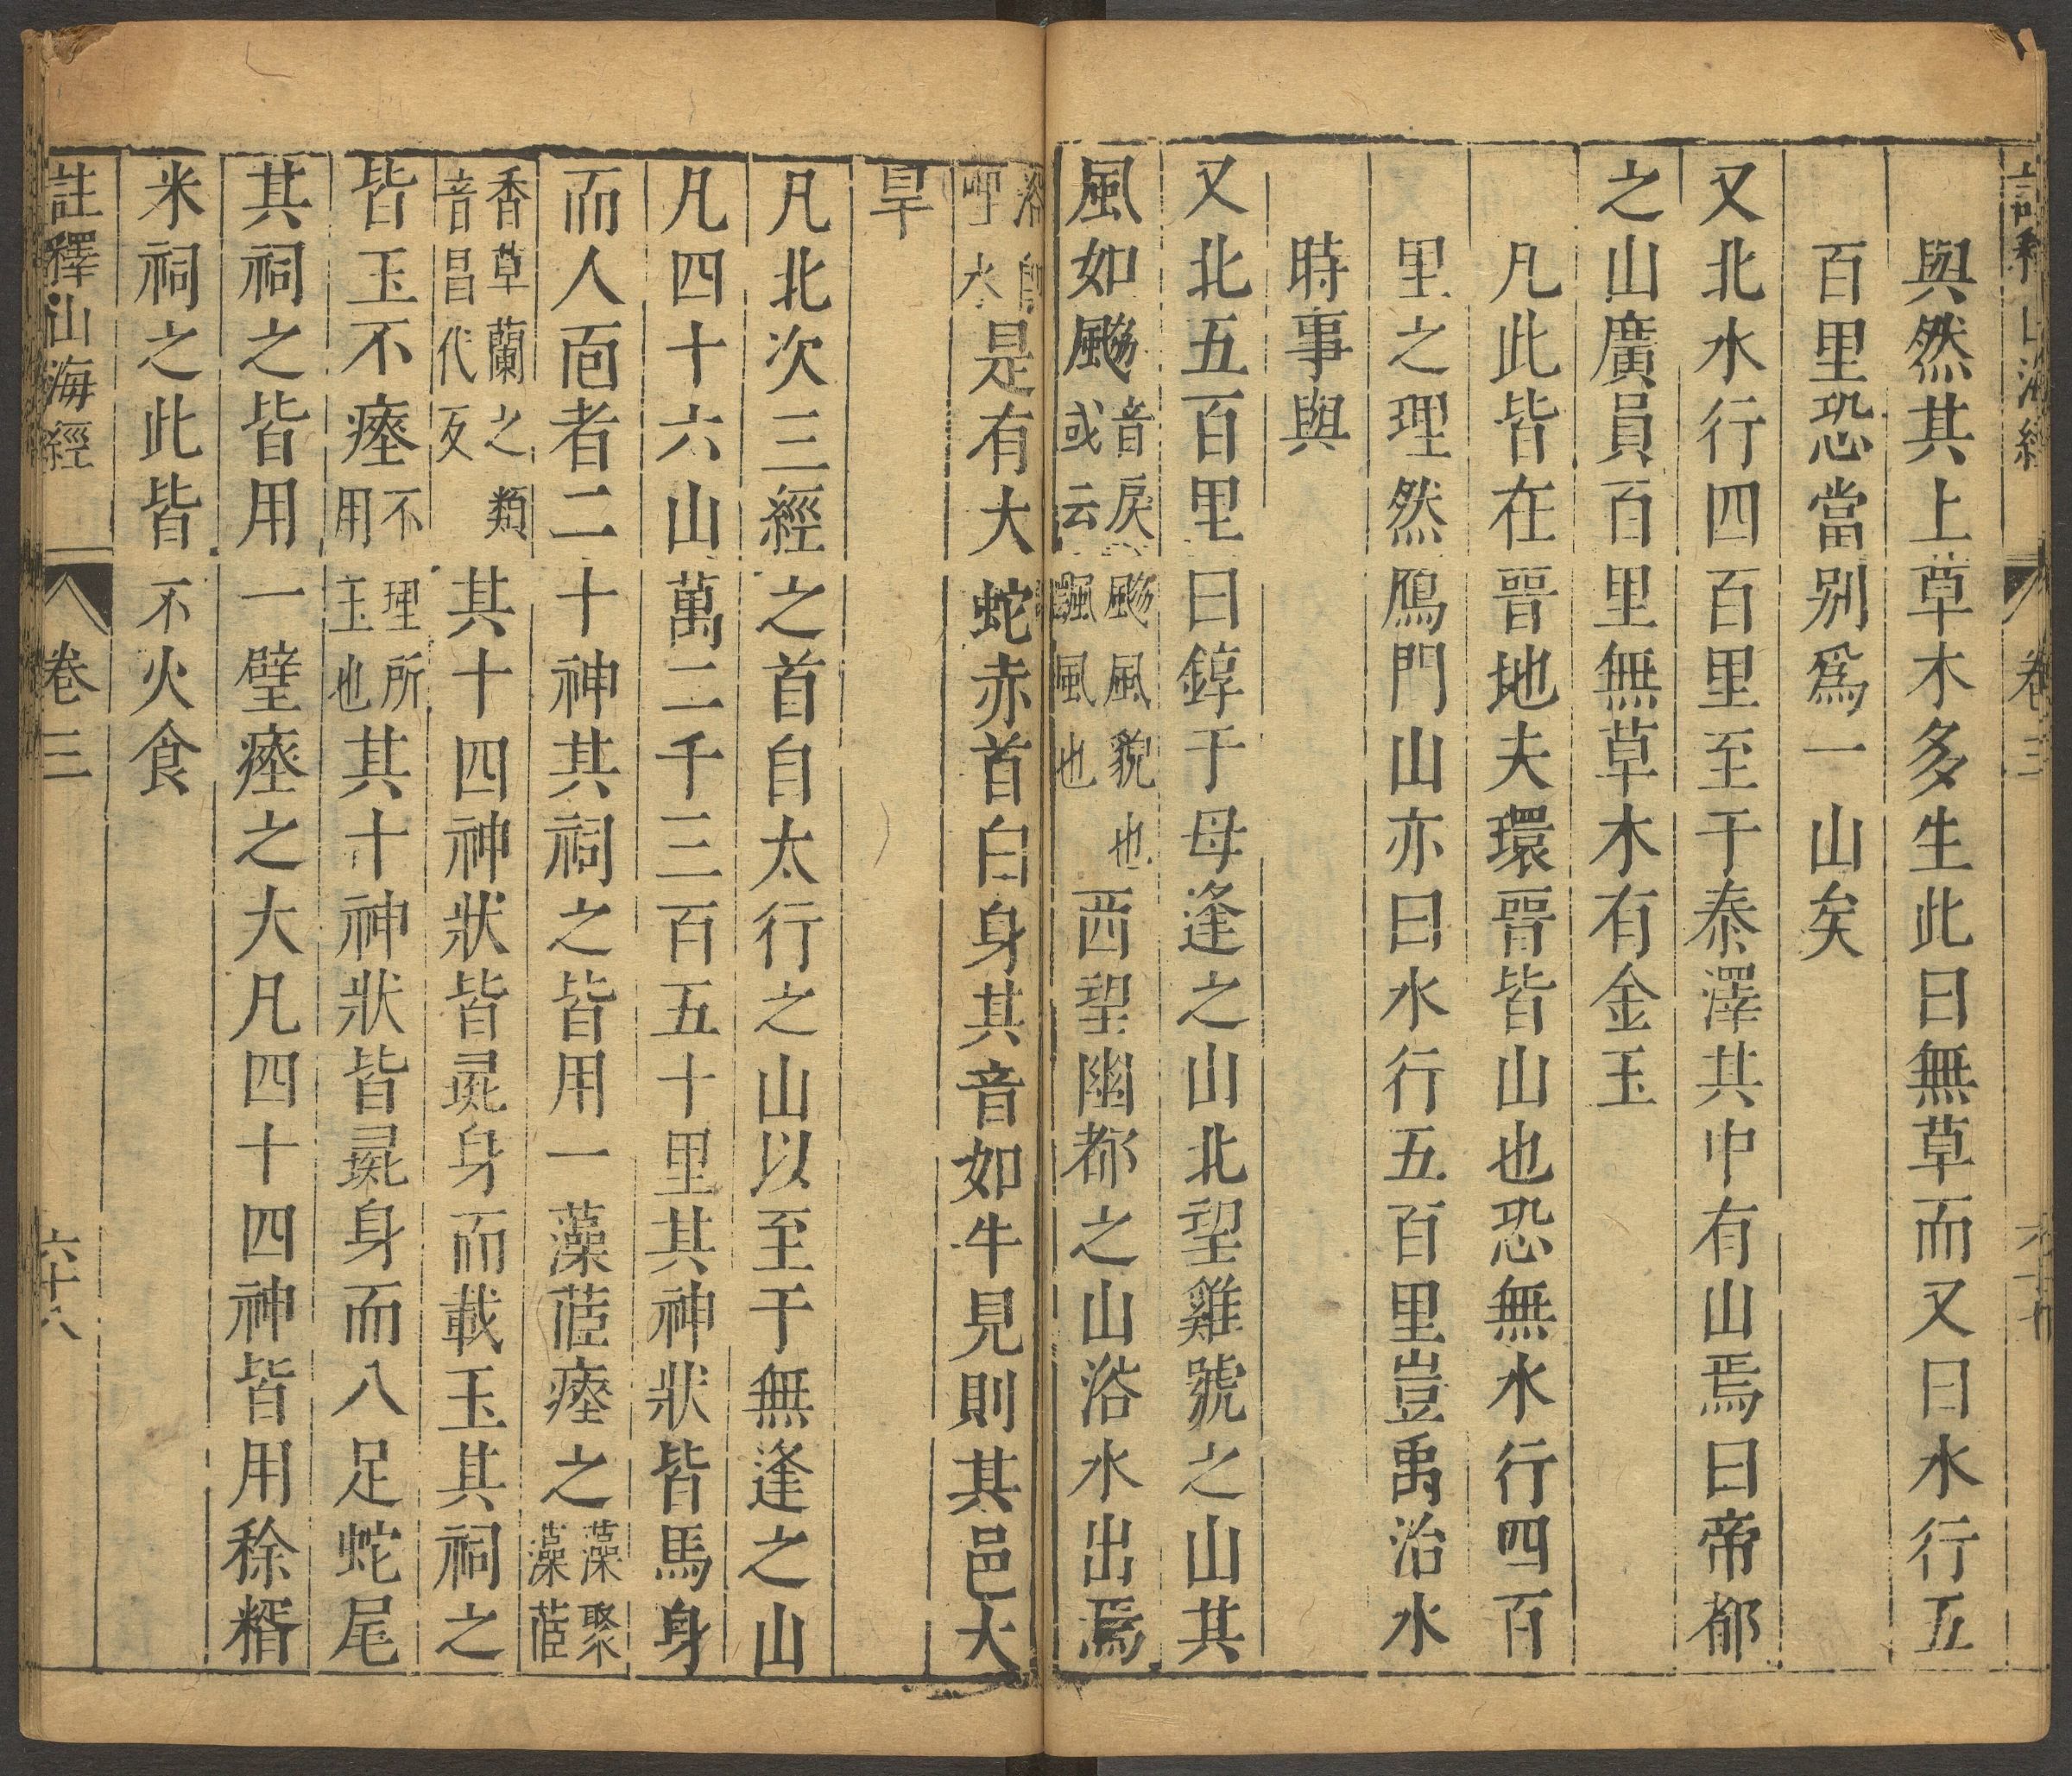 註釋山海經 卷三
與然其上草木多生此曰無草而又曰水行五
百里恐當别爲一山矣
又北水行四百里至于泰澤其中有山焉曰帝都
之山廣員百里無草木有金玉
凡此皆在晉地夫環晉皆山也恐無水行四百
里之理然鴈門山亦曰水行五百里豈禹治水
時事與
又北五百里曰錞于母逢之山北望雞號之山其
風如䬅音戾䬅風貌也或云飄風也西望幽都之山浴水出焉
浴卽水是有大蛇赤首白身其音如牛見則其邑大
旱
凡北次三經之首自太行之山以至于無逢之山
凡四十六山萬二千三百五十里其神狀皆馬身
而人面者二十神其祠之皆用一藻茝瘞之藻聚藻茝
香草蘭之類音昌代反其十四神狀皆彘身而載玉其祠之
皆玉不瘞不埋所用玉也其十神狀皆彘身而八足蛇尾
其祠之皆用一璧瘞之大凡四十四神皆用稌糈
米祠之此皆不火食
註釋山海經 卷三 六十八